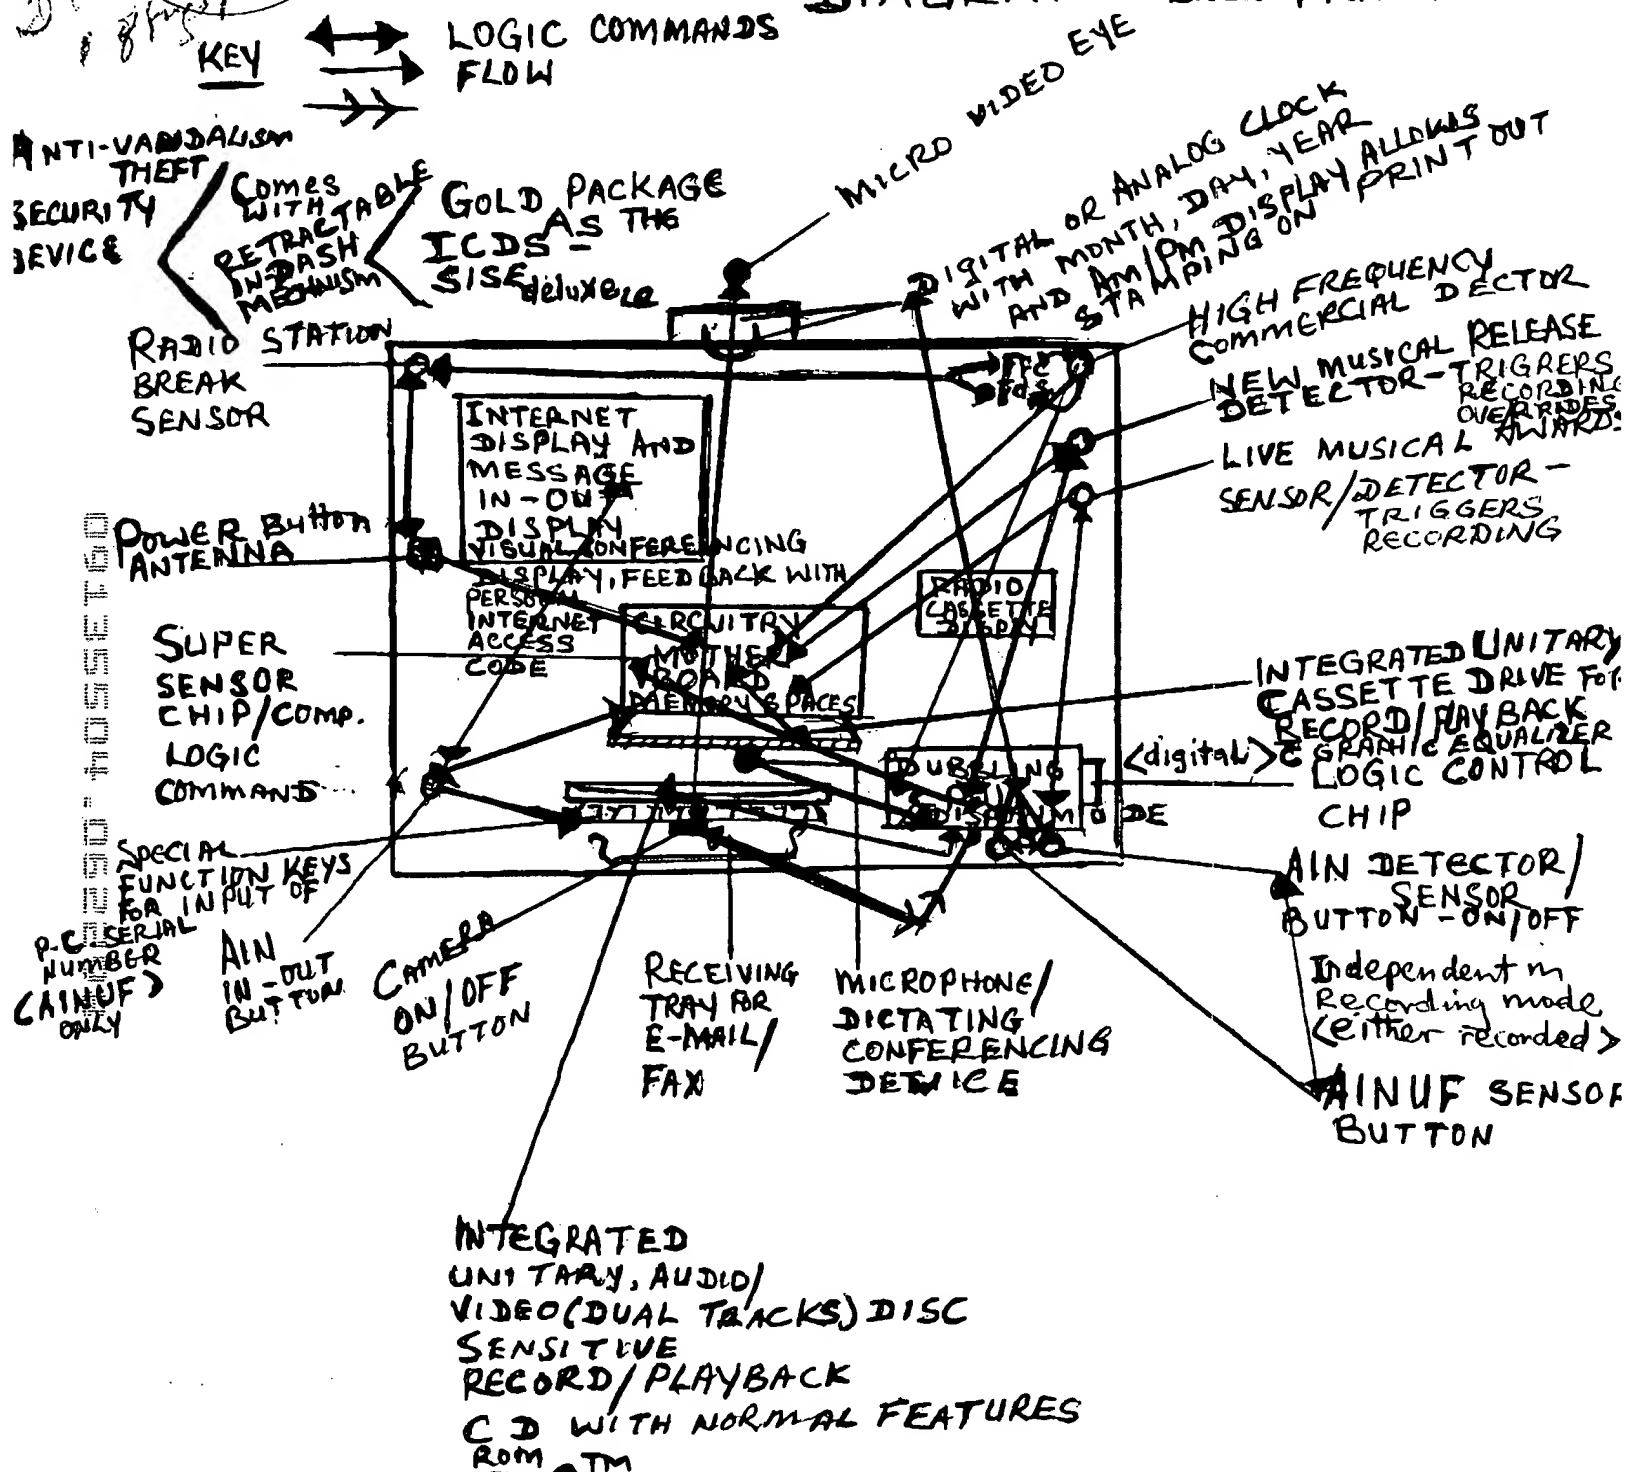 KEY
LOGIC COMMANDS
FLOW
MICRO VIDEO EYE
ANTI-VANDALISM
THEFT
SECURITY
DEVICE
COMES
WITH
RETRACTABLE
IN-DASH
MECHNISM
GOLD PACKAGE
AS THE
ICDS-
SISE deluxe le
DIGITAL OR ANALOG CLOCK
WITH MONTH, DAY, YEAR
AND AM/PM DISPLAY ALLOWS
STAMPING ON PRINT OUT
HIGH FREQUENCY
COMMERCIAL DECTOR
NEW MUSICAL RELEASE
DETECTOR-TRIGRERS
RECORDING
OVERRIDES
LIVE MUSICAL AWARDS
SENSOR/DETECTOR-
TRIGGERS
RECORDING
RADIO STATION
BREAK
SENSOR
INTERNET
DISPLAY AND
MESSAGE
IN-OUT
DISPLAY
VISUAL CONFERENCING
DISPLAY, FEEDBACK WITH
PERSONAL
INTERNET
ACCESS
CODE
POWER Button
ANTENNA
RADIO
CASSETTE
DISPLAY
CIRCUITRY
MOTHER
BOARD
MEMORY SPACES
SUPER
SENSOR
CHIP/COMP.
LOGIC
COMMAND
INTEGRATED UNITARY
CASSETTE DRIVE FOR
RECORD/PLAYBACK
<digital>
GRAPHIC EQUALIZER
LOGIC CONTROL
CHIP
DUBBLING
DISPLAY MODE
SPECIAL
FUNCTION KEYS
FOR INPUT OF
P.C. SERIAL
NUMBER
(AINUF)
ONLY
AIN
IN-OUT
BUTTON
CAMERA
ON/OFF
BUTTON
RECEIVING
TRAY FOR
E-MAIL/
FAX
MICROPHONE/
DICTATING
CONFERENCING
DEVICE
AIN DETECTOR/
SENSOR
BUTTON-ON/OFF
Independent in
Recording mode
<either recorded>
AINUF SENSOR
BUTTON
INTEGRATED
UNITARY, AUDIO/
VIDEO (DUAL TRACKS) DISC
SENSITIVE
RECORD/PLAYBACK
CD WITH NORMAL FEATURES
ROM